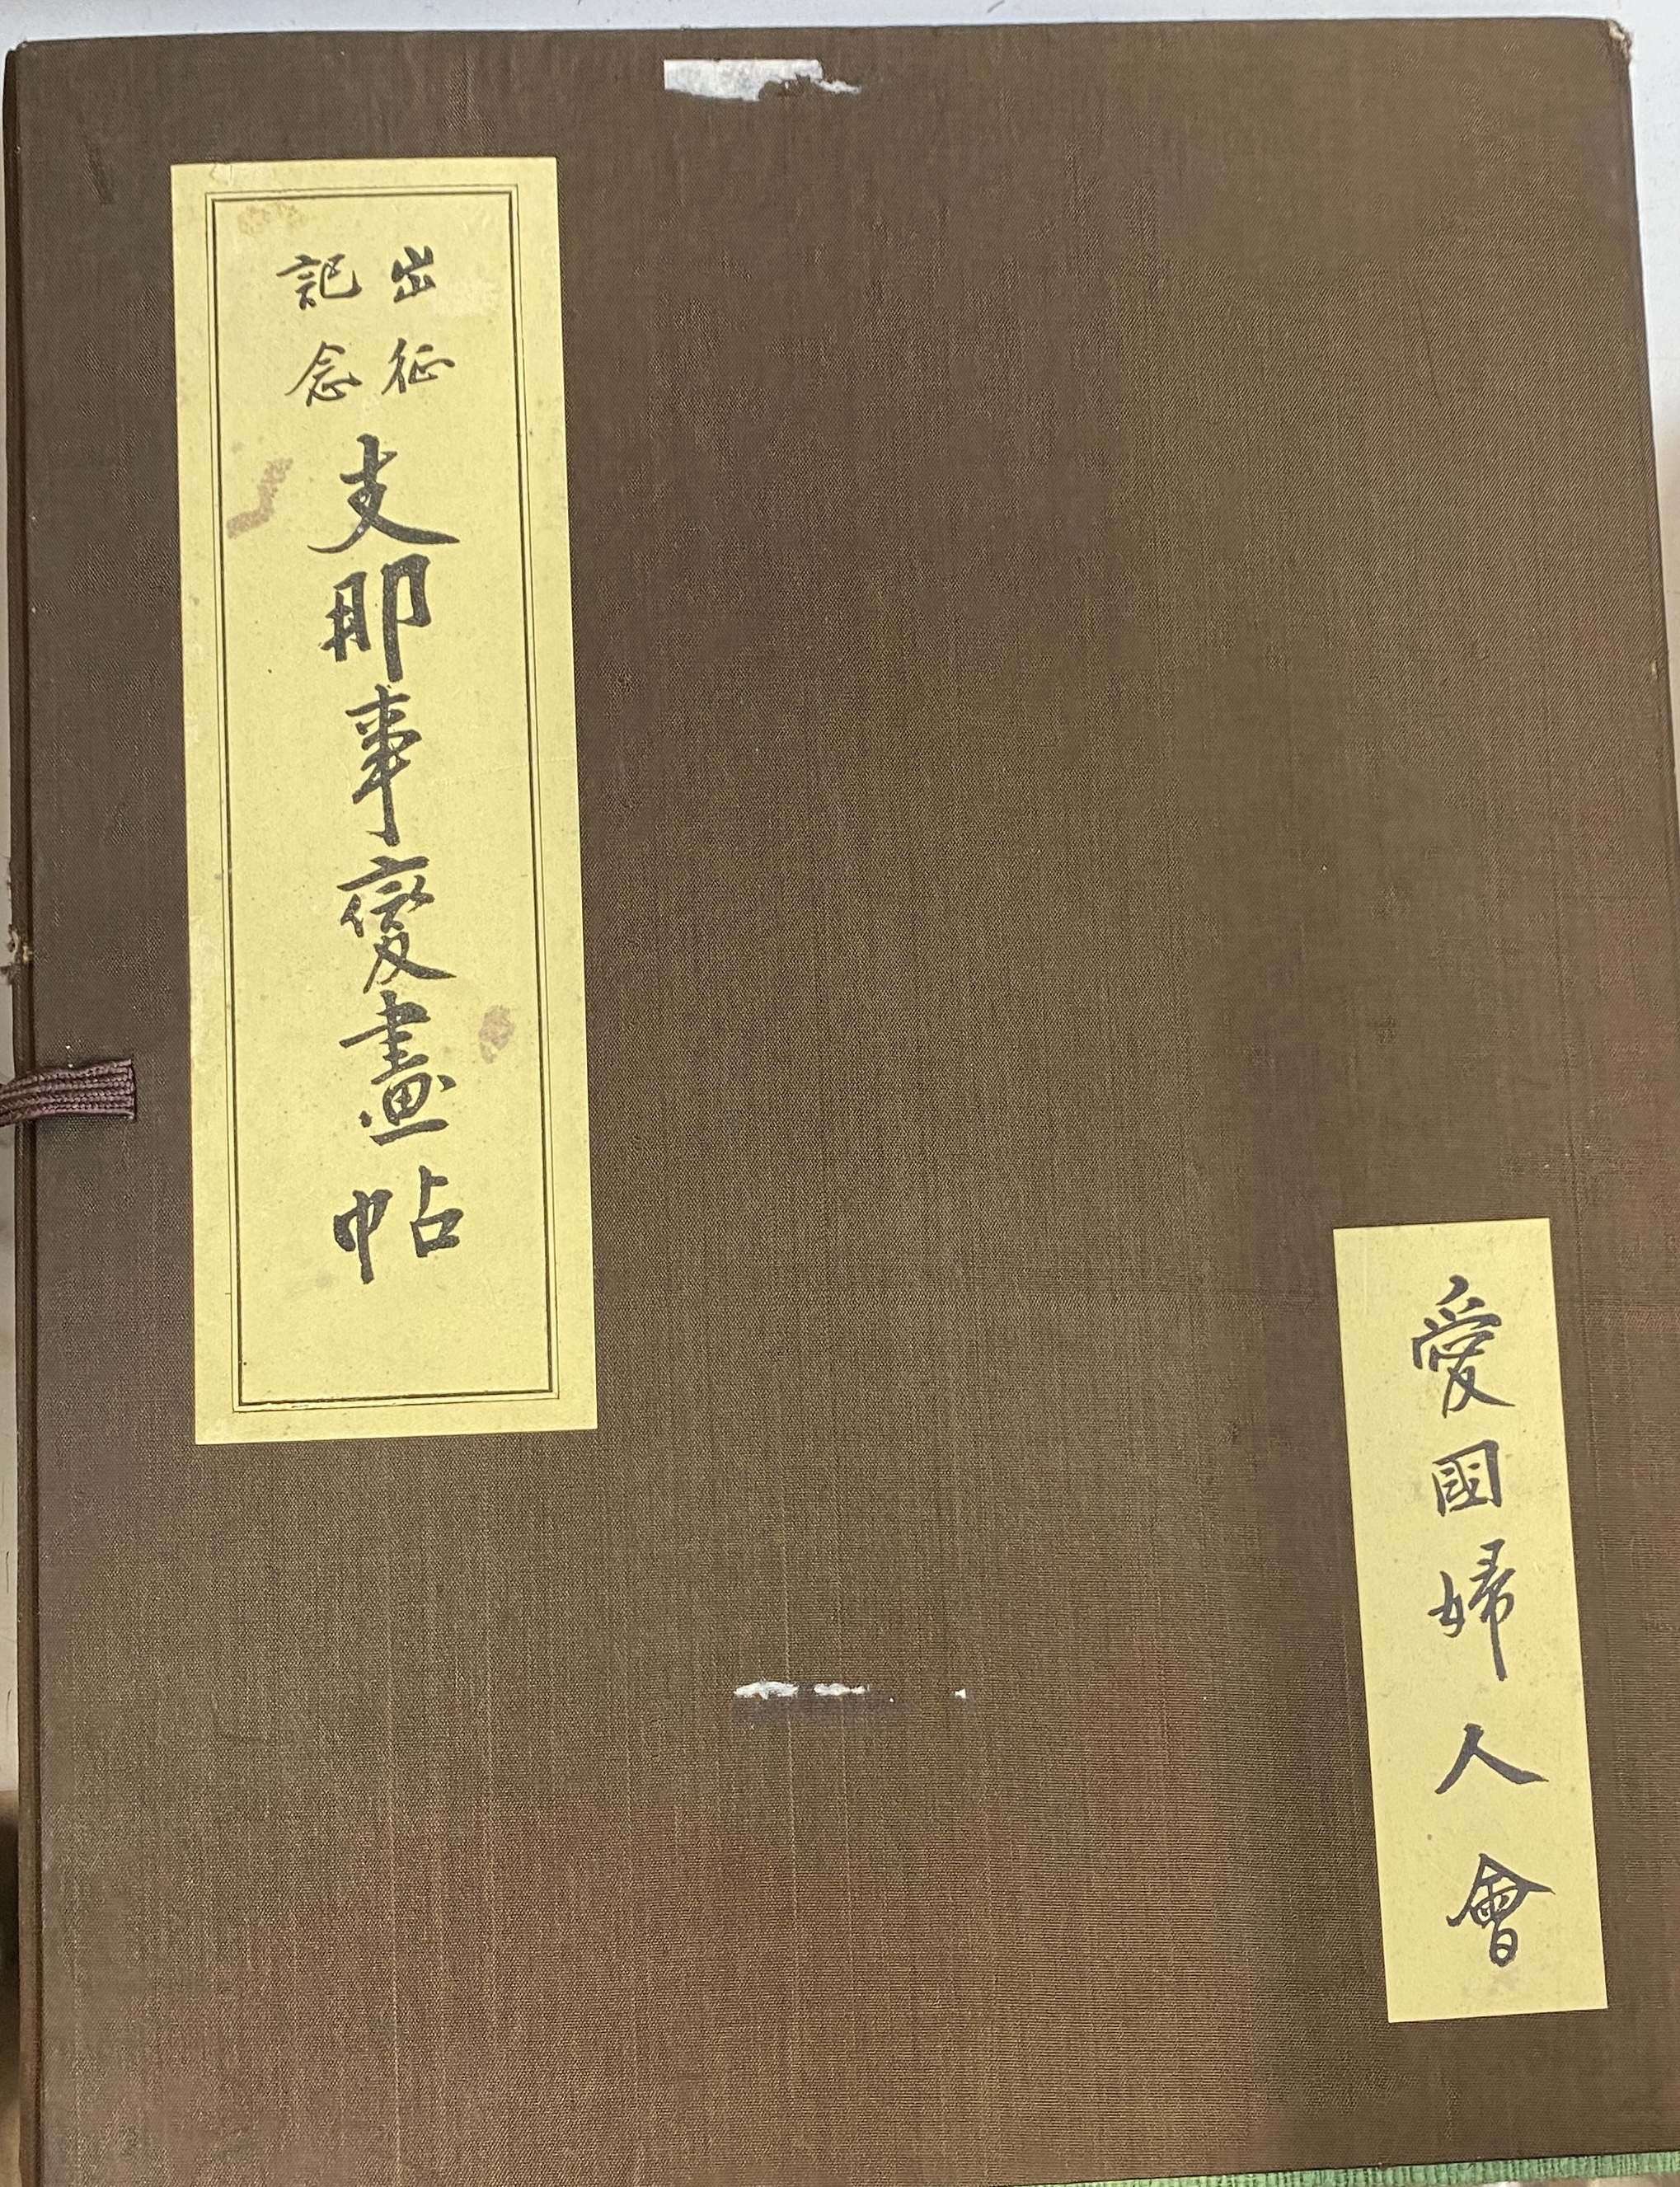 出征
記念
支那事變畫帖
愛國婦人會